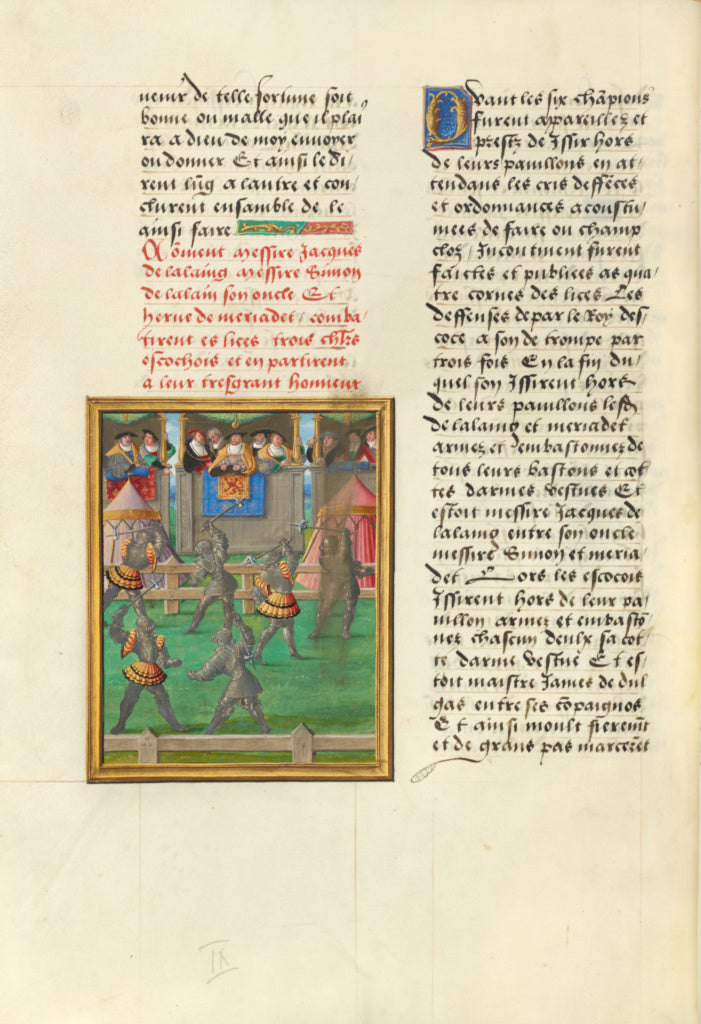 venir de telle fortune soit
bonne ou malle que il plai
ra a dieu de moy envoyer
ou donner Et ainsi le di/
rent lũg a lautre et con/
clurent ensamble de le
ainsi faire
Cõment messire Jacques
de lalaing messire Simon
de lalain son oncle Et
herve de meriadet / comba/
tirent es lices trois chlrs
escochois et en partirent
a leur tresgrant honneur
Quant les six chãpions
furent appareillez et
prestz de Issir hors
de leurs pavillons en at/
tendans les cris deffẽces
et ordonnances acoustu/
mees de faire ou champ
cloz / Incontinent furent
faictes et publiees as qua/
tre cornes des lices Les
deffenses de par le Roy des/
coce a son de trompe par
trois fois En la fin du/
quel son Issirent hors
de leurs pavillons lesd
de lalaing et meriadet
armez et embastonnez de
tous leurs bastons et cot/
tes darmes vestues Et
estoit messire Jacques de
lalaing entre son oncle
messire Simon et meria/
det Lors les escocois
Issirent hors de leur pa/
villon armez et embastõ/
nez chascun deulx sa cot/
te darme vestue Et es/
toit maistre James de dul
gas entre ses cõpaignos
Et ainsi moult fieremt
et de grans pas marcerẽt
IX